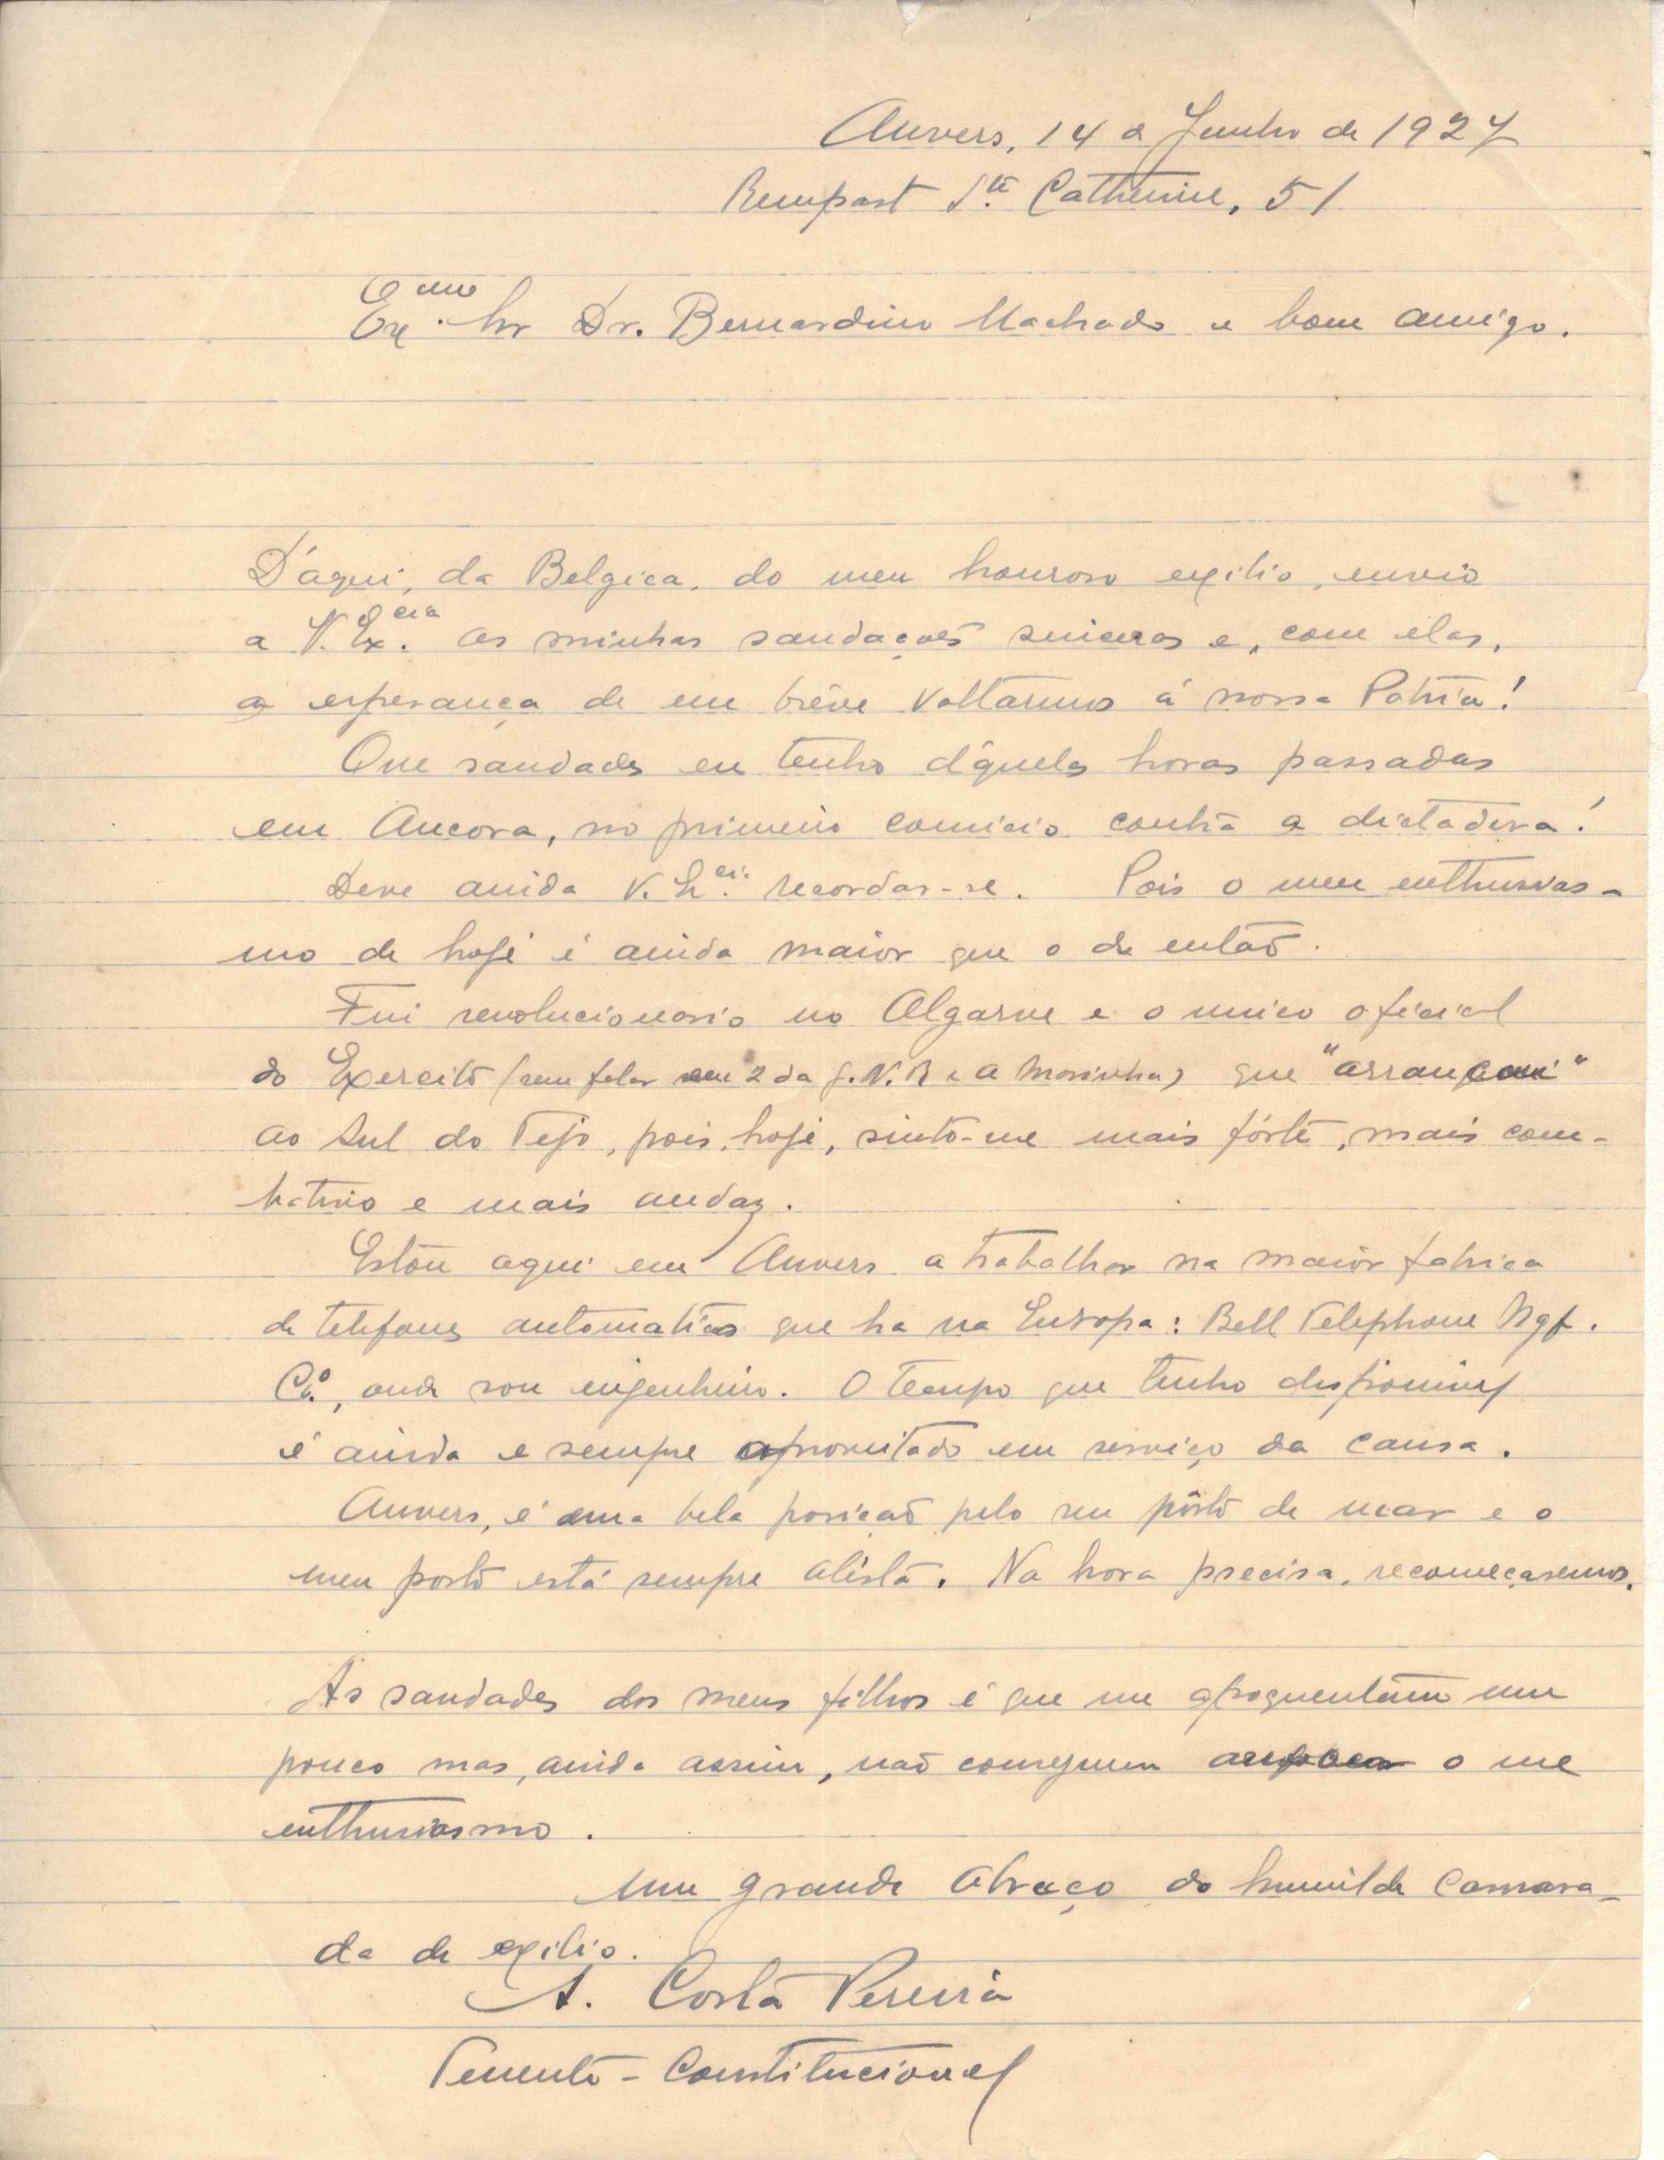 Anvers, 14 de Junho de 1927
Rempart Ste. Catherine, 51
Exmo. Snr Dr. Bernardino Machado e bom amigo.
D'áqui, da Belgica, do meu honroso exilio, envio
a V. Excia. as minhas saudações sinceras e, com elas,
a esperança de em bréve voltarmos á nossa Patria!
Que saudades eu tenho d'áquelas horas passadas
em Ancora, no primeiro comicio contra a dictadura!
Deve ainda V. Excia. recordar-se. Pois o meu enthusias-
mo de hoje é ainda maior que o de então.
Fui revolucionario no Algarve e o unico oficial
do Exercito (sem falar em 2 da G.N.R e a Marinha) que "arrancou"
ao Sul do Tejo, pois, hoje, sinto-me mais fórte, mais com-
bativo e mais audaz.
Estou aqui em Anvers a trabalhar na maior fabrica
de telefones automaticos que ha na Europa: Bell Telephone Mgf.
Co., onde sou engenheiro. O tempo que tenho disponivel
é ainda e sempre aproveitado em serviço da causa.
Anvers, é uma bela posição pelo seu pôrto de mar e o
meu posto está sempre alerta. Na hora precisa, recomeçaremos.
As saudades dos meus filhos é que me apoquentam um
pouco mas, ainda assim, não conseguem o meu
enthusiasmo.
Um grande abraço do humilde camara-
da de exilio.
A. Costa Pereira
Tenente - Constitucional